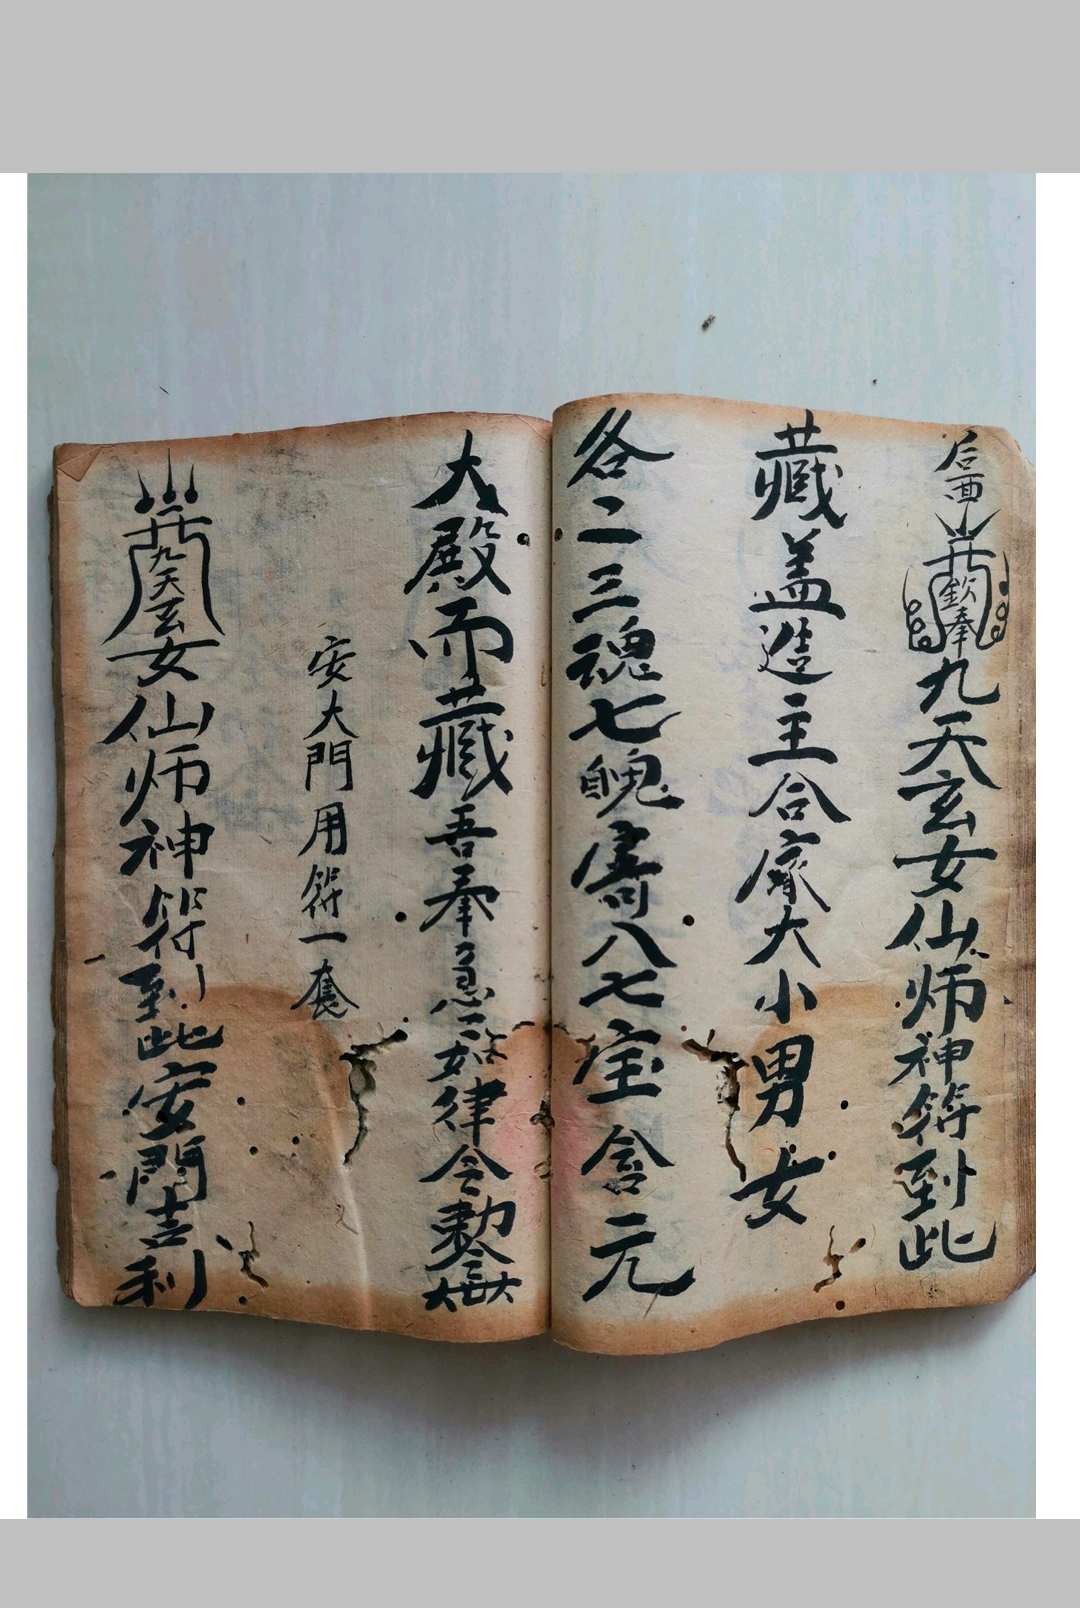 后面
欽奉九天玄女仙师神符到此
藏盖造主合家大小男女
各二三魂七魄寄八七宝舍元
大殿而藏吾奉急如律令勅
安大門用符一套
九天玄女仙师神符到此安門吉利